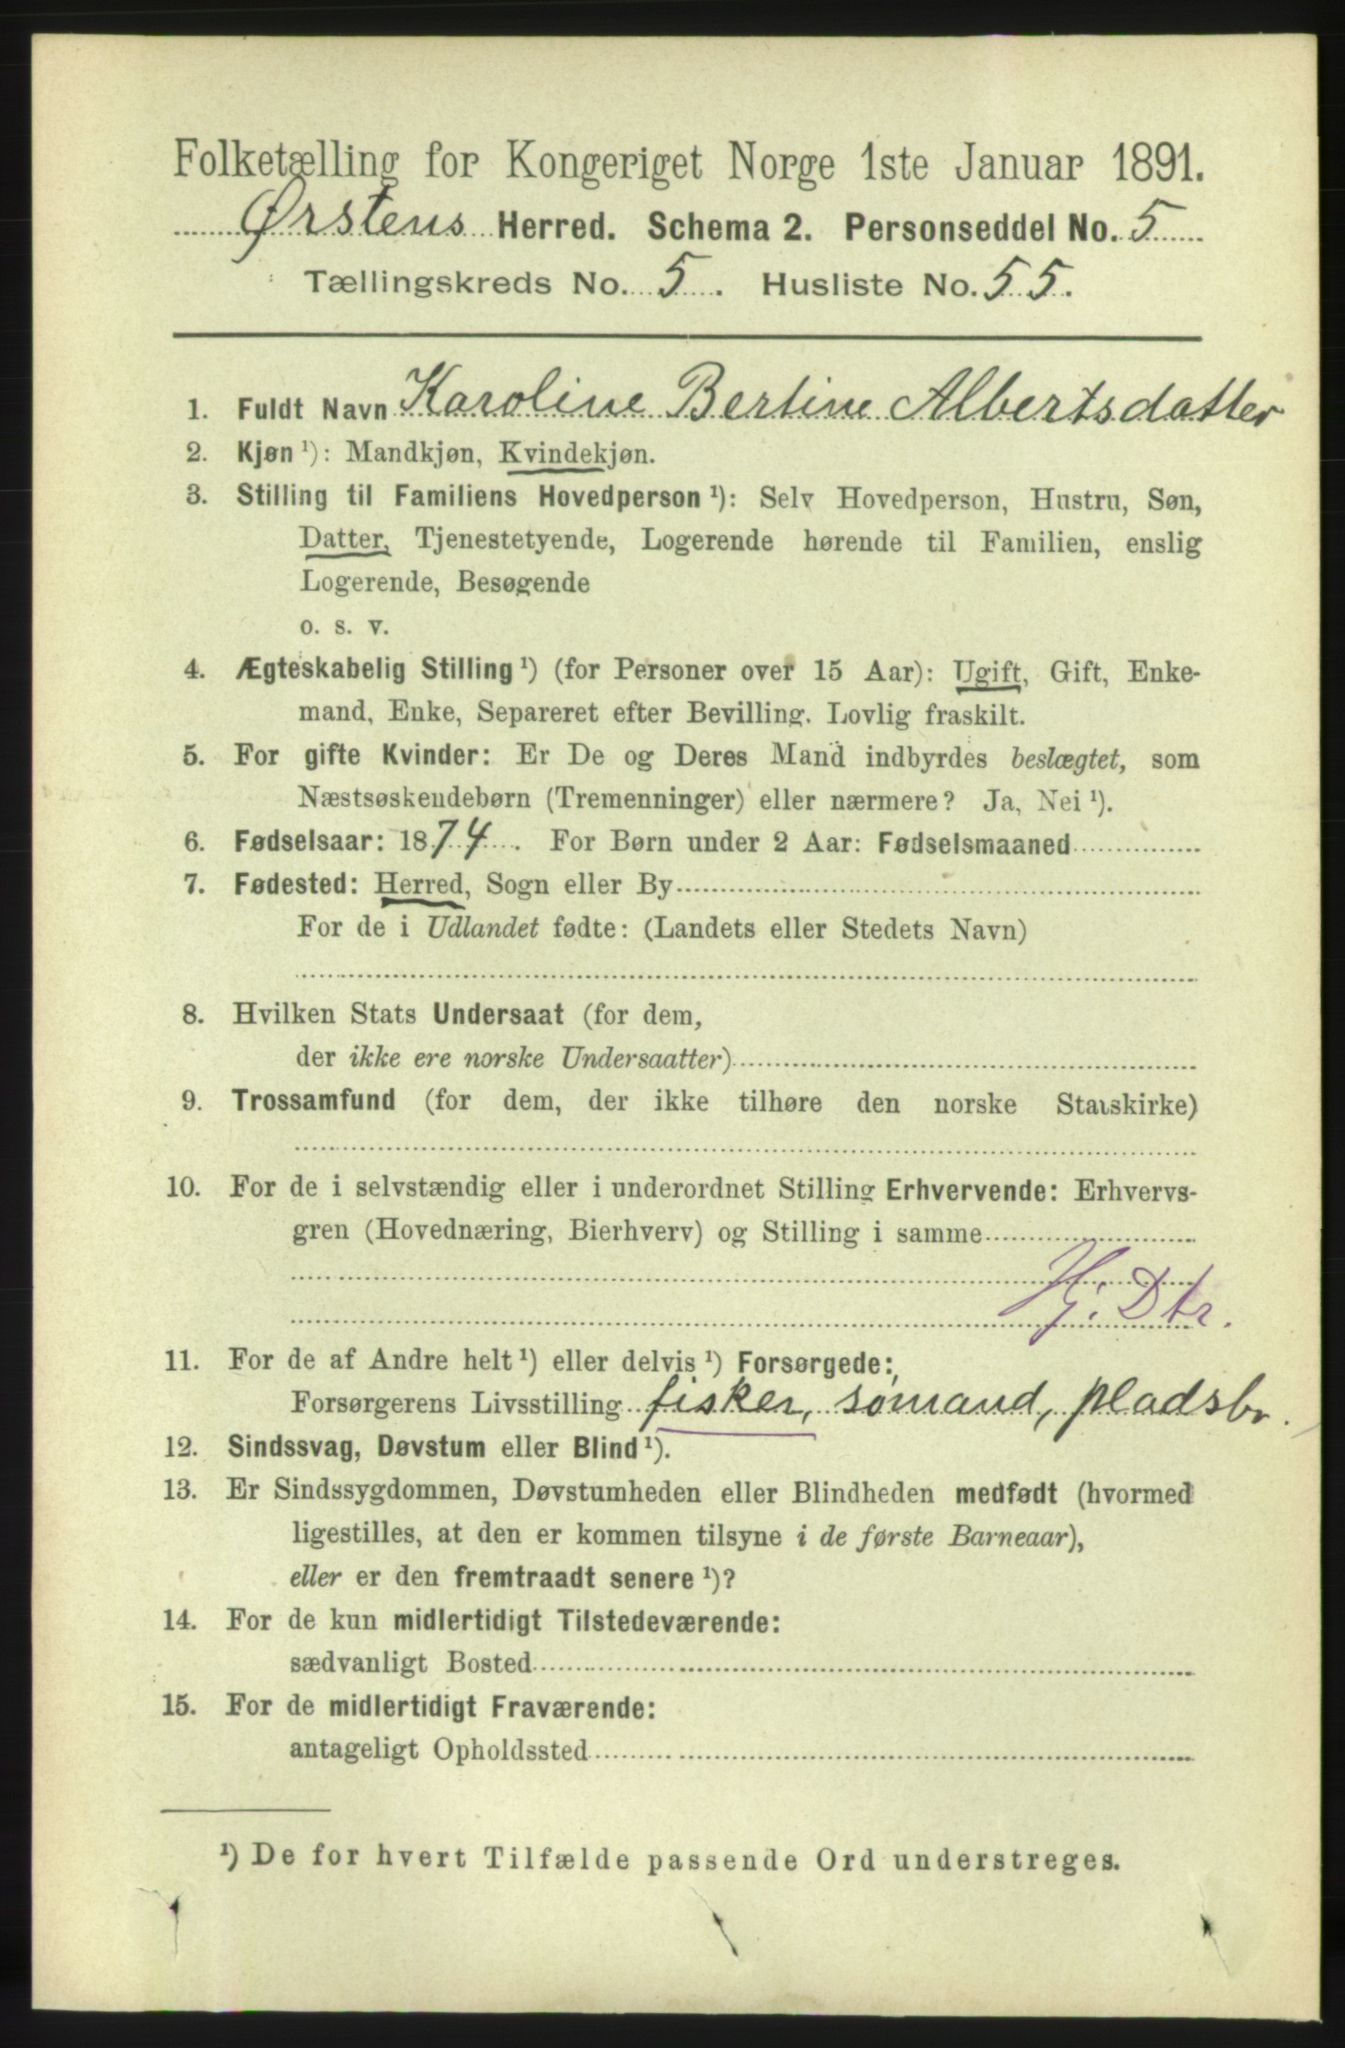 Folketælling for Kongeriget Norge 1ste Januar 1891.
Ørstens Herred. Schema 2. Personseddel No. 5
Tællingskreds No. 5. Husliste No. 55.
1. Fuldt Navn Karoline Bertine Albertsdatter
2. Kjøn ¹): Mandkjøn, Kvindekjøn.
3. Stilling til Familiens Hovedperson ¹): Selv Hovedperson, Hustru, Søn,
Datter, Tjenestetyende, Logerende hørende til Familien, enslig
Logerende, Besøgende
o. s. v.
4. Ægteskabelig Stilling ¹) (for Personer over 15 Aar): Ugift, Gift, Enke-
mand, Enke, Separeret efter Bevilling. Lovlig fraskilt.
5. For gifte Kvinder: Er De og Deres Mand indbyrdes beslægtet, som
Næstsøskendebørn (Tremenninger) eller nærmere? Ja, Nei ¹).
6. Fødselsaar: 1874. For Børn under 2 Aar: Fødselsmaaned
7. Fødested: Herred, Sogn eller By
For de i Udlandet fødte: (Landets eller Stedets Navn)
8. Hvilken Stats Undersaat (for dem,
der ikke ere norske Undersaatter)
9. Trossamfund (for dem, der ikke tilhøre den norske Statskirke)
10. For de i selvstændig eller i underordnet Stilling Erhvervende: Erhvervs-
gren (Hovednæring, Bierhverv) og Stilling i samme
Hj. Dtr.
11. For de af Andre helt ¹) eller delvis ¹) Forsørgede:
Forsørgerens Livsstilling fisker, sømand, pladsbr.
12. Sindssvag, Døvstum eller Blind ¹).
13. Er Sindssygdommen, Døvstumheden eller Blindheden medfødt (hvormed
ligestilles, at den er kommen tilsyne i de første Barneaar),
eller er den fremtraadt senere ¹)?
14. For de kun midlertidigt Tilstedeværende:
sædvanligt Bosted
15. For de midlertidigt Fraværende:
antageligt Opholdssted
¹) De for hvert Tilfælde passende Ord understreges.